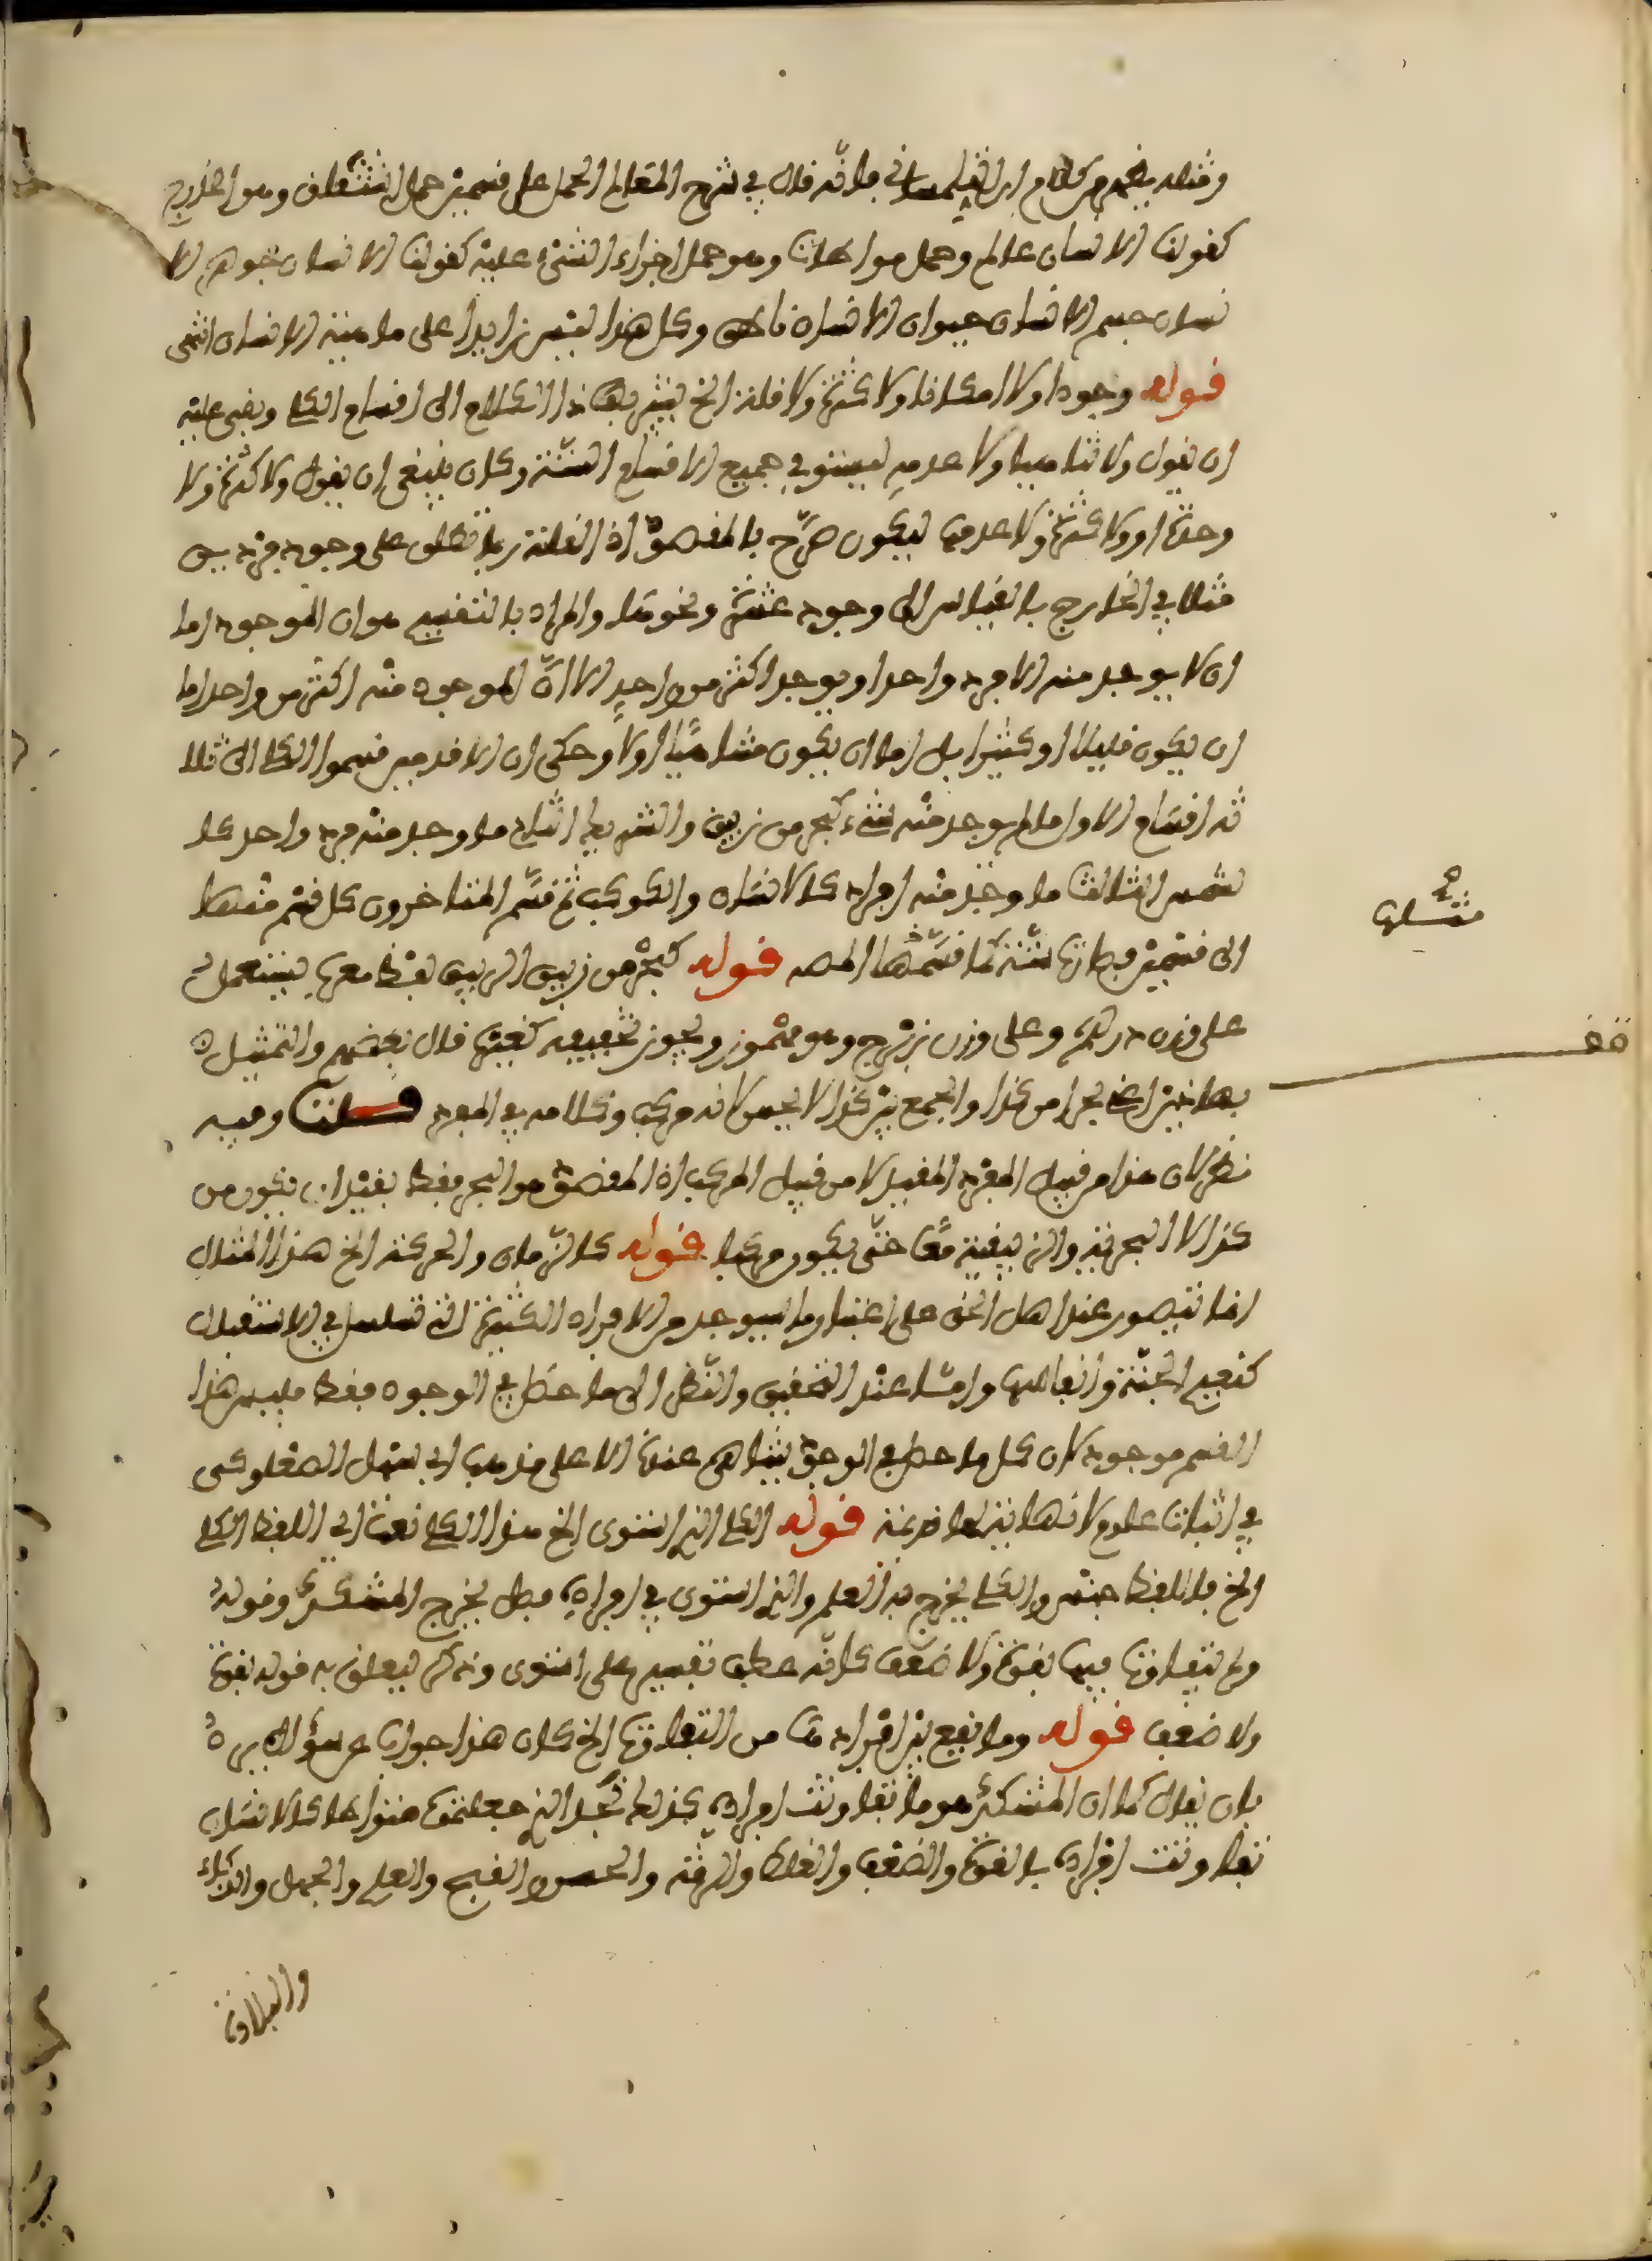 ومثله يفهم من كلام ابن التلمساني فإنه قال في شرح المعالم الحمل على قسمين حمل اشتقاق وهو الخارج
كقولنا الإنسان عالم وحمل مواطات وهو حمل أجزاء الشيء عليه كقولنا الإنسان جوهر الا
نسان جسم الإنسان حيوان الإنسان ناطق وكل هذا ليس زايدا على ماهية الإنسان انتهى
قوله وجودا ولا امكانا ولا كثرة ولا قلة الخ يشير بهذا الكلام الى اقسام الكلي وبقي عليه
ان يقول ولا تناهيا ولا عدمه ليستوفي جميع الاقسام الستة وكان ينبغي ان يقول ولا كثرة ولا
وحدة او ولا كثرة ولا عدمها ليكون صرح بالمقصود اذ القلة ربما تطلق على وجود فردين
مثلا في الخارج بالقياس الى وجود عشرة ونحوها والمراد بالتقسيم هو ان الموجود اما
ان لا يوجد منه الا فرد واحد او يوجد اكثر من واحد الا ان الموجود منه اكثر من واحد اما
ان يكون قليلا او كثيرا بل اما ان يكون متناهيا او لا وحكي ان الاقدمين قسموا الكلي الى ثلا
ثة اقسام الاول ما لم يوجد منه شيء كبحر من زيبق والشريك الثاني ما وجد منه فرد واحد كا
لشمس الثالث ما وجد منه افراد كالانسان والكوكب ثم قسم المتاخرون كل قسم منها
الى قسمين فصارت ستة كما قسمها المصـ قوله كبحر من زيبق الزيبق لفظ معرب يستعمل
على وزن درهم وعلى وزن زبرج وهو مهموز ويجوز تخفيفه كغيره قال بعضهم والتمثيل
بهذا خير بحرا من كذا والجمع بين كذا لا يحسن لانه مركب وكلامه في المفرد قلت وفيه
نظر لان هذا من قبيل المفرد المقيد لا من قبيل المركب اذ المقصود هو البحر فقط بقيد ان يكون من
كذا لا البحرية والزيبقية معا حتى يكون مركبا قوله كالزمان والحركة الخ هذا المثال
انما يتصور عند اهل الحق على اعتبار ما سيوجد من الافراد الكثيرة التي تتسلسل في الاستقبال
كنعيم الجنة وانفاسها واما عند التحقيق والنظر الى ما حصل في الوجود فقط فليس هذا
القسم موجود لان كل ما حصل في الوجود يتناهى عندنا الا على مذهب ابي سهل الصعلوكي
في اثبات علوم لا نهاية لها قديمة قوله الكلي الذي استوى الخ هذا الكلي نعت اي اللفظ الكلي
الخ فاللفظ جنس والكلي يخرج به العلم والذي استوى في افراده فصل يخرج المشكك وقوله
ولم تتفاوت فيها بقوة ولا ضعف كانه عطف تفسير على استوى وذكره ليعلق به قوله بقوة
ولا ضعف قوله وما يقع بين افراده من التفاوت الخ كان هذا جواب عن سؤال يرد
بان يقال كما ان المشكك هو ما تفاوتت افراده كذلك نجد الذي جعلتموه متواطيا كالانسان
تفاوتت افراده بالقوة والضعف والغلظ والرقة والحسن والقبح والعلم والجهل والذكاء
والبلادة
مثلها
قف